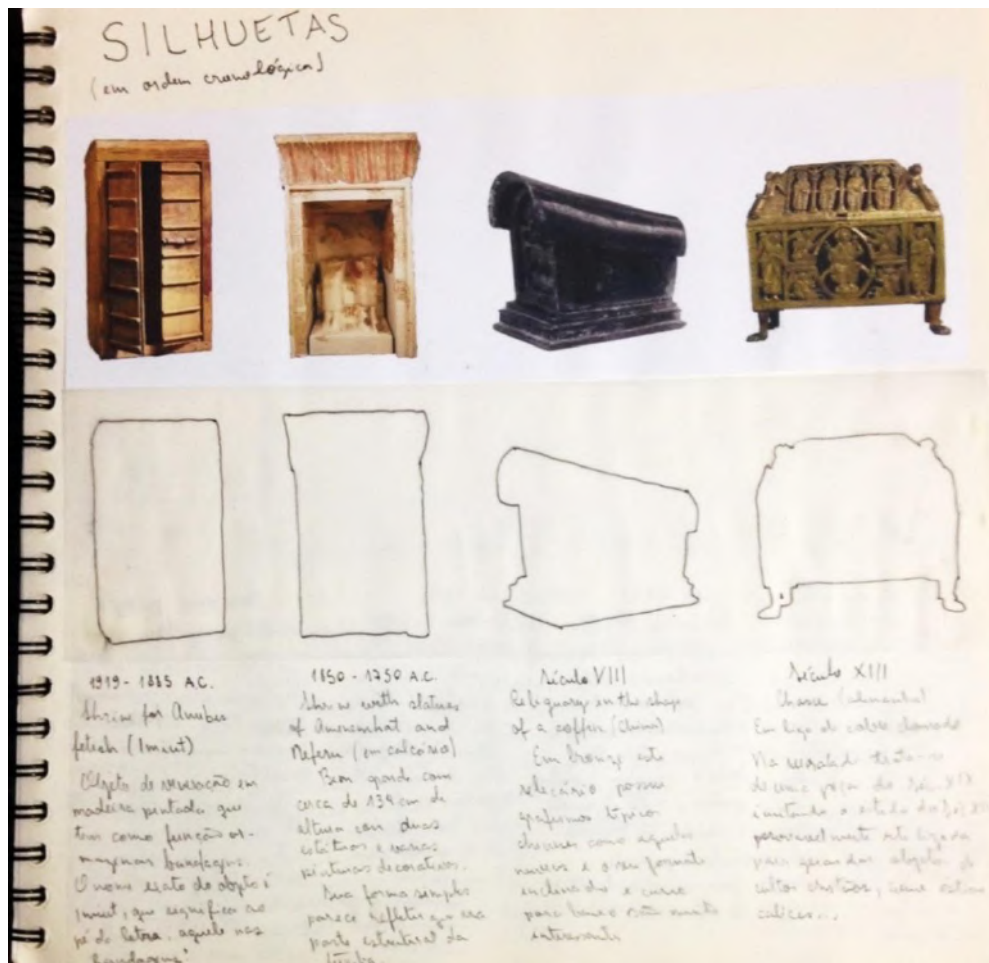 SILHUETAS
(em ordem cronológica)
1919 - 1885 A.C.
Shrine for Anubis
fetish (Imiut)
Objeto de veneração em
madeira pintada que
tem como função ar-
mazenar bandagens.
O nome exato do objeto é
Imiut, que significa ao
pé da letra, aquele nas
Bandagens"
1850 - 1750 A.C.
Shrine with statues
of Amenemhat and
Neferu (em calcário)
Bem grande com
cerca de 134 cm de
altura com duas
estátuas e varias
pinturas decorativas.
Sua forma simples
parece refletir que era
parte estrutural da
Século VIII
Reliquary in the shape
of a coffin (China)
Em bronze este
relicário possui
grafismos típicos
chineses como aquelas
nuvens e o seu formato
inclinado e curvo
para baixo são muito
interessantes
Século XIII
Chasse (alemanha)
Em liga de cobre dourado
Na
de uma peça do séc. XIX
imitando o estilo do
provavelmente
para guardar objetos de
cultos cristãos, como
calices...